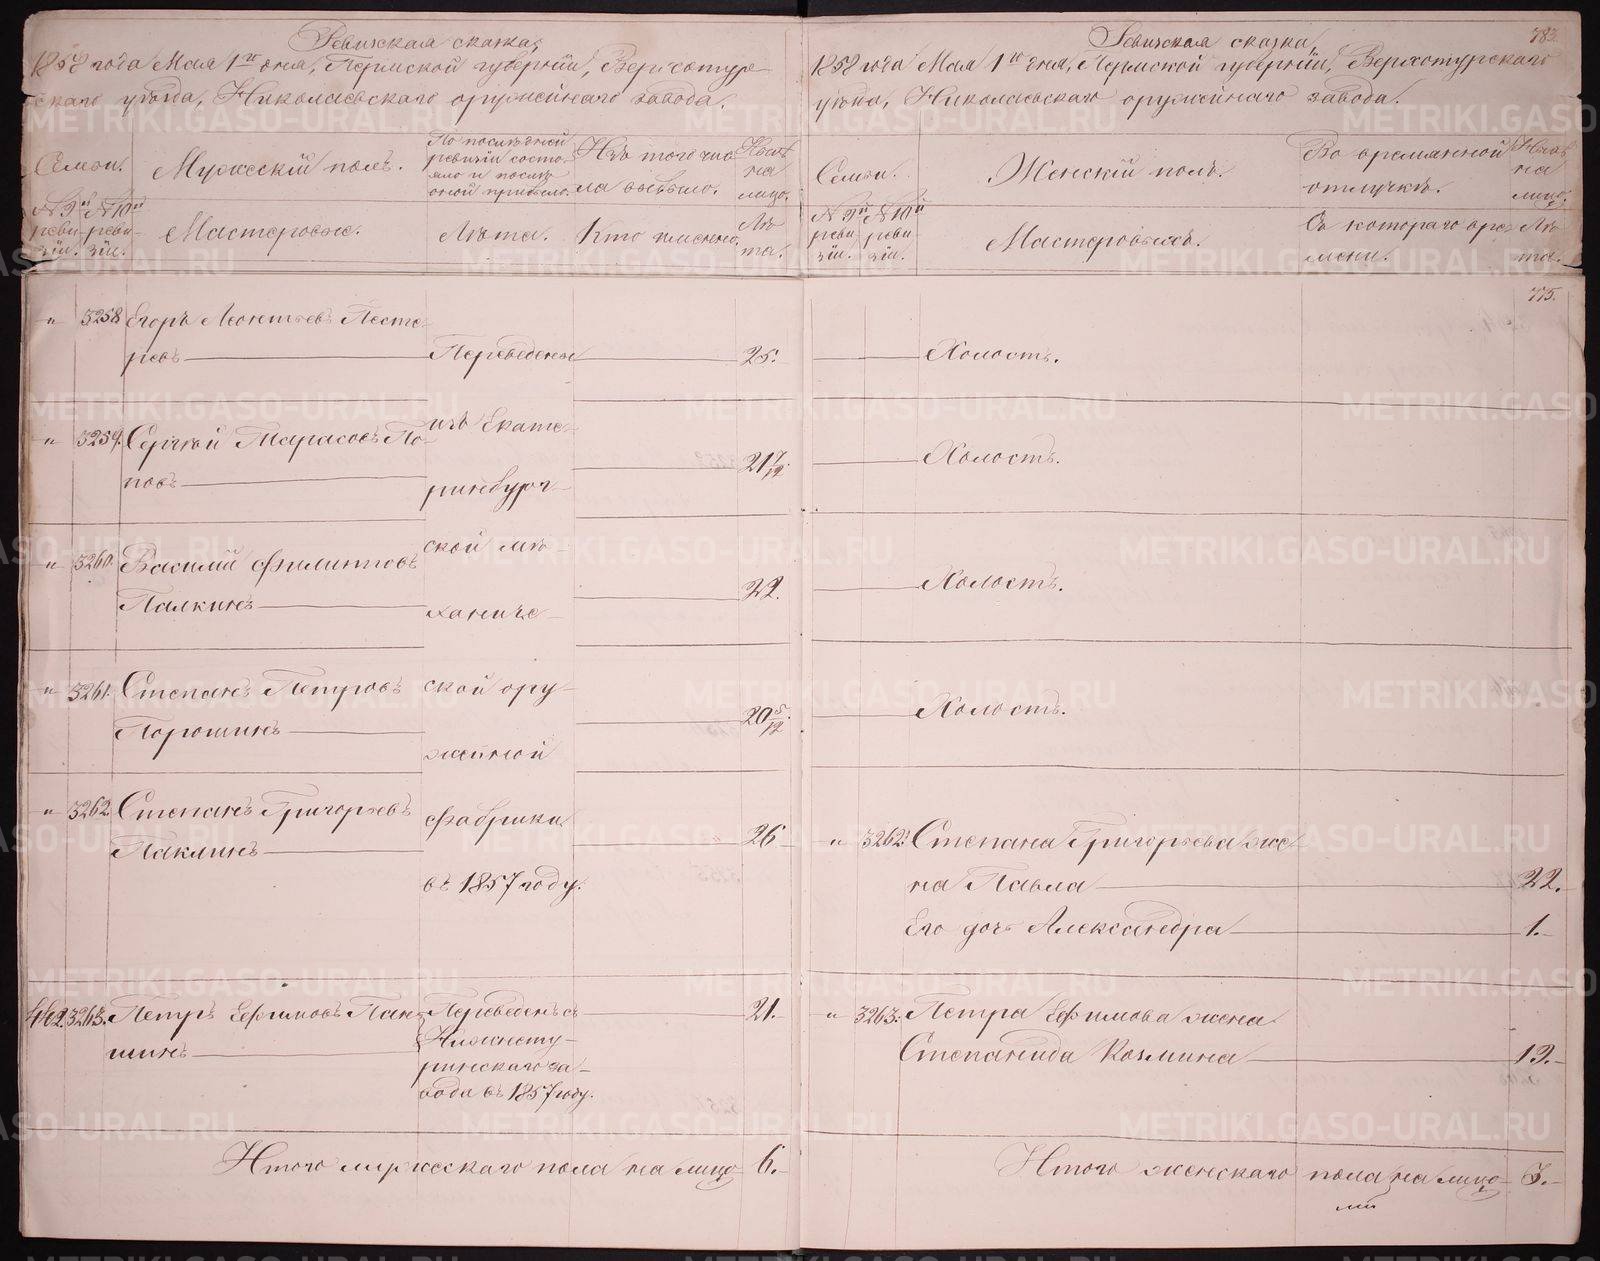 Ревизская сказка,
1858 года Мая 1го дня, Пермской губернии, Верхотур-
скаго уезда, Николаевскаго оружейнаго завода.
Семьи.
Мужескій полъ.
По последней
ревизіи состо-
яло и после
оной прибыло.
Изъ того чис-
ла выбыло.
Ныне
на
лицо.
№ 9й
реви-
зіи.
№ 10й
реви-
зіи.
Мастеровые.
Лета.
Кто именно.
Ле-
та.
" 3258 Егоръ Леонтьевъ Песте-
ревъ Переведены 25.
" 3259. Сергей Тарасовъ По-
повъ 21 7/12.
изъ Екате-
ринбург-
" 3260. Василій Филиповъ
Палкинъ 22.
ской ме-
ханиче-
" 3261. Степанъ Петровъ
Порошинъ 20 5/12.
ской ору-
жейной
" 3262 Степанъ Григорьевъ
Паклинъ 26
фабрики
въ 1857 году.
442. 3263. Петръ Ефимовъ Пань-
шинъ 21.
Переведенъ съ
Нижнету-
ринскаго за-
вода въ 1857 году.
Итого мужескаго пола на лицо 6.
783.
Ревизская сказка,
1858 года Мая 1го дня, Пермской губерніи, Верхотурскаго
уезда, Николаевскаго оружейнаго завода.
Семьи.
Женскій полъ.
Во временной
отлучке.
Ныне
на
лицо.
№ 9й
реви-
зіи.
№ 10й
реви-
зіи.
Мастеровыхъ.
Съ котораго вре-
мени.
Ле-
та.
775.
Холостъ.
Холостъ.
Холостъ.
Холостъ.
" 3262. Степана Григорьева же-
на Павла 22.
Его дочь Александра 1.
" 3263. Петра Ефимова жена
Степанида Козмина 19.
Итого женскаго пола на лицо 3.
METRIKI.GASO-URAL.RU